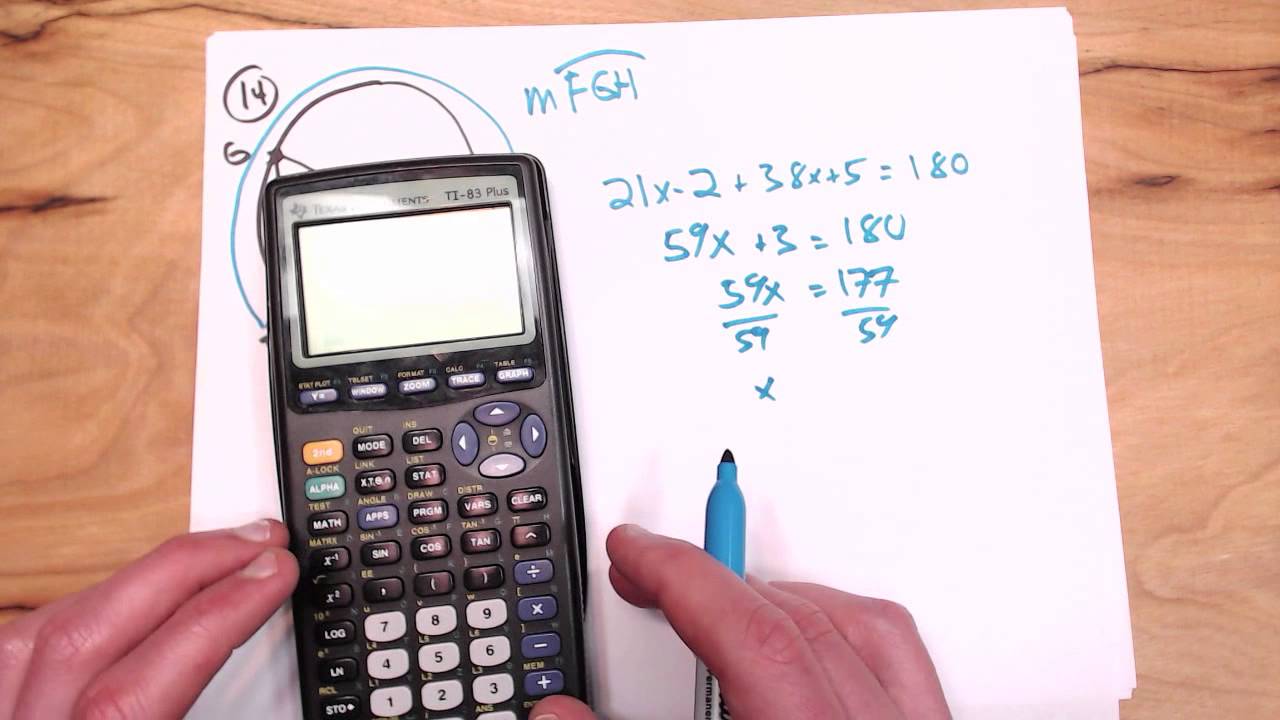 14
mFGH
G
21x-2+38x+5=180
59x+3=180
59x=177
59 59
x
TI-83 Plus
STAT PLOT TBLSET FORMAT CALC TABLE
Y= WINDOW ZOOM TRACE GRAPH
QUIT INS
2nd MODE DEL
A-LOCK LINK LIST
ALPHA X,T,Θ,n STAT
TEST ANGLE DRAW DISTR
MATH APPS PRGM VARS CLEAR
MATRX SIN⁻¹ COS⁻¹ TAN⁻¹ π
x⁻¹ SIN COS TAN ^
√ EE
x² , ( ) ÷
10ˣ
LOG 7 8 9 ×
eˣ L4 L5 L6
LN 4 5 6 −
RCL L1 L2 L3 MEM
STO▸ 1 2 3 +
ANS